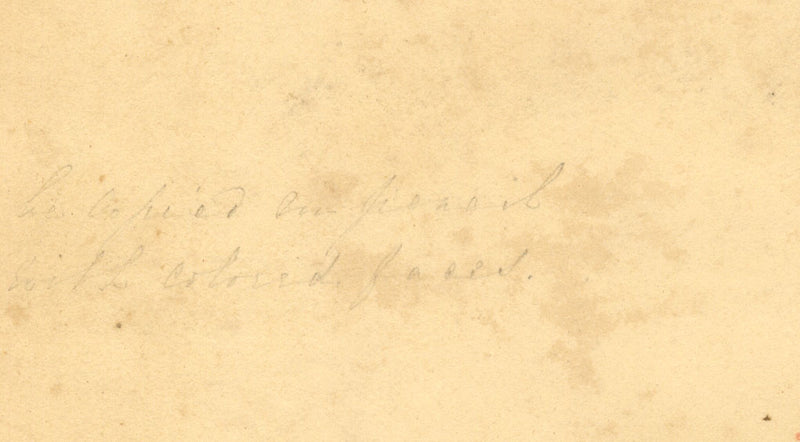 be copied in pencil
with colored faces.